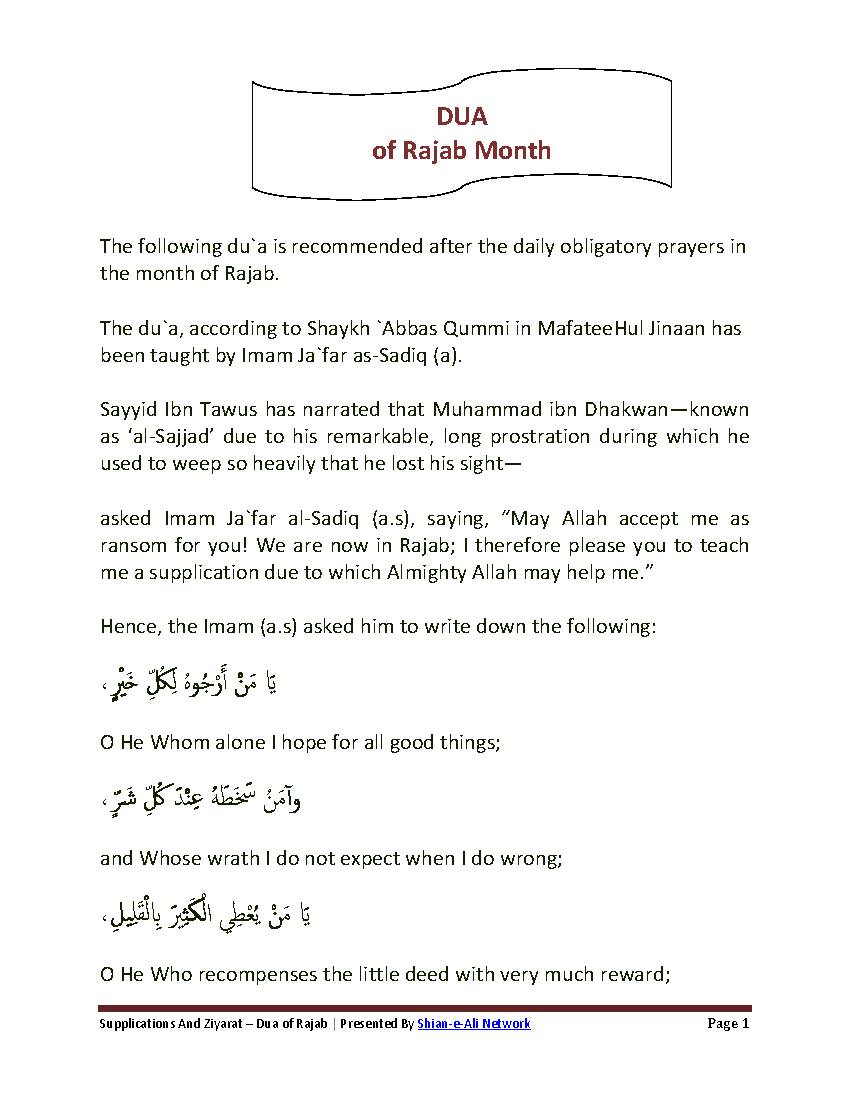 DUA
of Rajab Month
The following du`a is recommended after the daily obligatory prayers in
the month of Rajab.
The du`a, according to Shaykh `Abbas Qummi in MafateeHul Jinaan has
been taught by Imam Ja`far as-Sadiq (a).
Sayyid Ibn Tawus has narrated that Muhammad ibn Dhakwan—known
as ‘al-Sajjad’ due to his remarkable, long prostration during which he
used to weep so heavily that he lost his sight—
asked Imam Ja`far al-Sadiq (a.s), saying, “May Allah accept me as
ransom for you! We are now in Rajab; I therefore please you to teach
me a supplication due to which Almighty Allah may help me.”
Hence, the Imam (a.s) asked him to write down the following:
يَا مَنْ أَرْجُوهُ لِكُلِّ خَيْرٍ،
O He Whom alone I hope for all good things;
وآمَنُ سَخَطَهُ عِنْدَ كُلِّ شَرٍّ،
and Whose wrath I do not expect when I do wrong;
يَا مَنْ يُعْطِي الْكَثِيرَ بِالْقَلِيلِ،
O He Who recompenses the little deed with very much reward;
Supplications And Ziyarat – Dua of Rajab | Presented By Shian-e-Ali Network Page 1